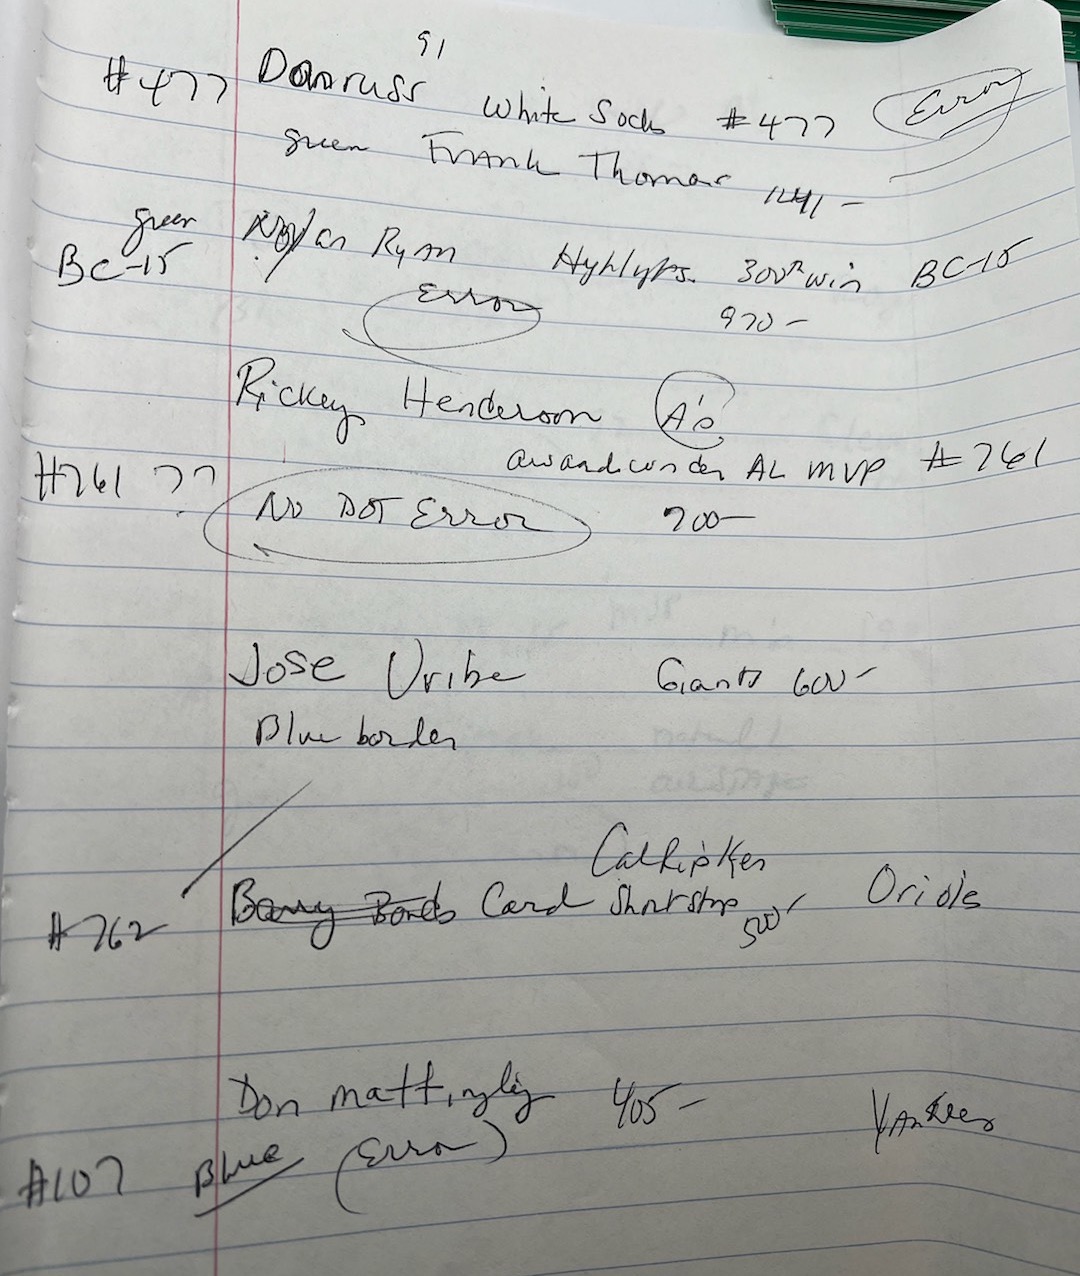 91
#477 Donruss White Socks #477 Error
green Frank Thomas 1241-
green Nolan Ryan Hyhlyts. 300th win BC-15
BC-15 Error 970-
Rickey Henderson A's
award winder AL MVP #761
#761 ?? No DOT Error 700-
Jose Uribe Giants 600-
Blue border
Cal Ripken
#762 Barry Bonds Card Shortstop 500- Oriols
Don mattingly 405- Yankees
#107 Blue (Error)